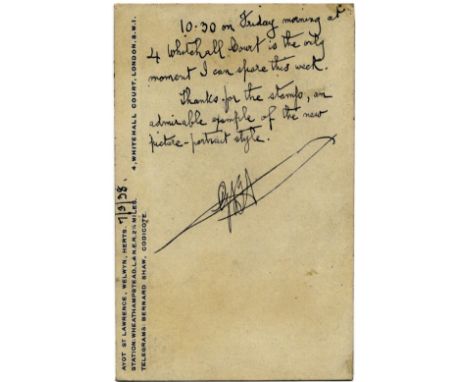 10.30 on Friday morning at
4 Whitehall Court is the only
moment I can spare this week.
Thanks for the stamp, an
admirable example of the new
picture-portrait style.
GBS
7/9/38.
4, WHITEHALL COURT, LONDON, S.W.1.
AYOT ST LAWRENCE, WELWYN, HERTS.
STATION: WHEATHAMPSTEAD, L.& N.E.R. 2¼ MILES.
TELEGRAMS: BERNARD SHAW, CODICOTE.